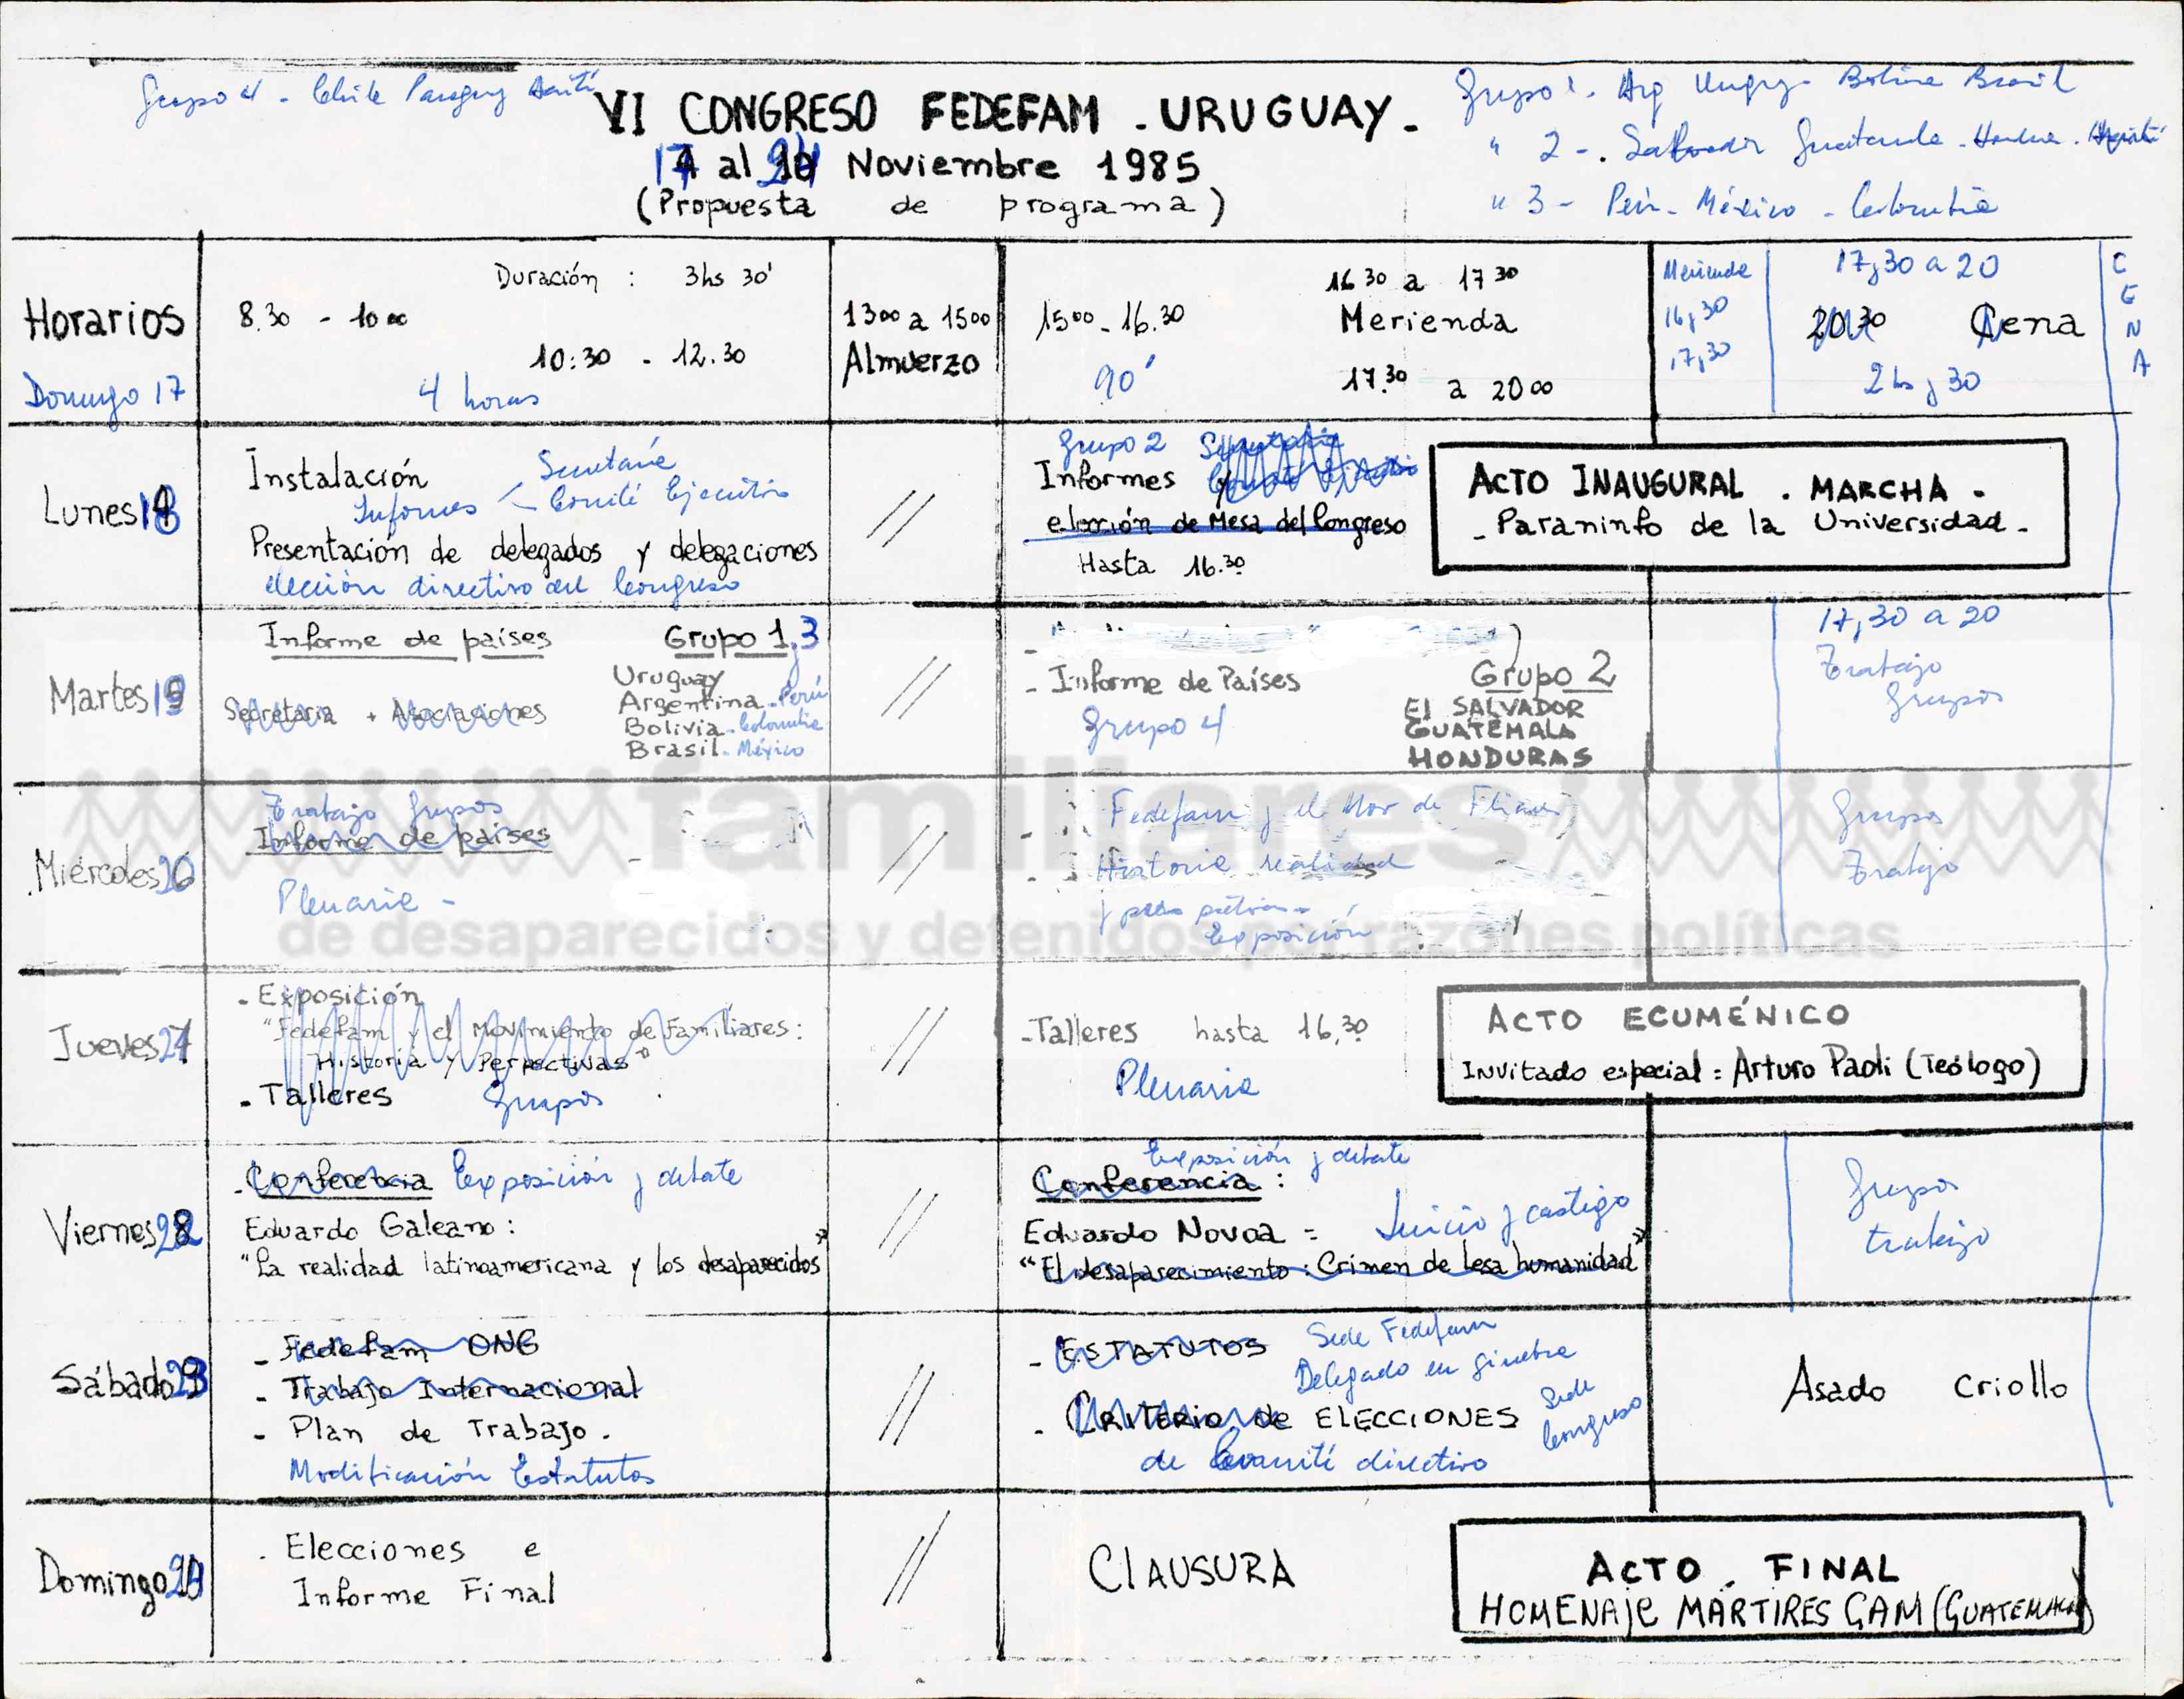 Grupo 4 - Chile Paraguay Haití
Grupo 1. Arg Urugy - Bolivia Brasil
" 2 -. Salvador Guatemala - Hondura.
" 3 - Perú - México - Colombia
VI CONGRESO FEDEFAM . URUGUAY.
17 al 24 Noviembre 1985
(Propuesta de programa)
Horarios
Domingo 17
Duración : 3hs 30'
8.30 - 10 00
10:30 - 12.30
4 horas
13 00 a 15 00
Almuerzo
15 00 - 16.30
90'
16 30 a 17 30
Merienda
17.30 a 20 00
Merienda
16,30
17,30
17,30 a 20
20 30 Cena
2 hs y 30
CENA
Lunes 18
Instalación
Informes < Secretaría
Comité Ejecutivo
Presentación de delegados y delegaciones
elección directivo del Congreso
//
Grupo 2
Informes y
elección de Mesa del Congreso
Hasta 16.30
ACTO INAUGURAL . MARCHA .
- Paraninfo de la Universidad -
Martes 19
Informe de países Grupo 1,3
Secretaria + Asociaciones
Uruguay
Argentina - Perú
Bolivia - Colombia
Brasil - México
//
- Informe de Países
Grupo 4
Grupo 2
El SALVADOR
GUATEMALA
HONDURAS
17,30 a 20
Trabajo
Grupos
Miércoles 20
Trabajo Grupos
Informe de países
Plenaria -
//
Fedefam y el Mov de Fliares
Historia realidad
Exposición
Grupos
Trabajo
familiares
de desaparecidos y detenidos por razones políticas
Jueves 21
- Exposición
"Fedefam y el Movimiento de Familiares:
Historia y Perpectivas"
- Talleres Grupos
//
- Talleres hasta 16,30
Plenaria
ACTO ECUMÉNICO
Invitado especial : Arturo Paoli (Teólogo)
Viernes 22
- Conferencia Exposición y debate
Eduardo Galeano :
"La realidad latinoamericana y los desaparecidos"
//
Exposición y debate
Conferencia :
Eduardo Novoa = Juicio y castigo
"El desaparecimiento : Crimen de lesa humanidad"
Grupos
trabajo
Sábado 23
- Fedefam ONG
- Trabajo Internacional
- Plan de Trabajo .
Modificación Estatutos
//
- ESTATUTOS
Sede Fedefam
Delegado en Ginebra
Sede
Congreso
- CRITERIO de ELECCIONES
de Comité directivo
Asado Criollo
Domingo 24
. Elecciones e
Informe Final
//
CLAUSURA
ACTO . FINAL
HOMENAJE MÁRTIRES GAM (GUATEMALA)